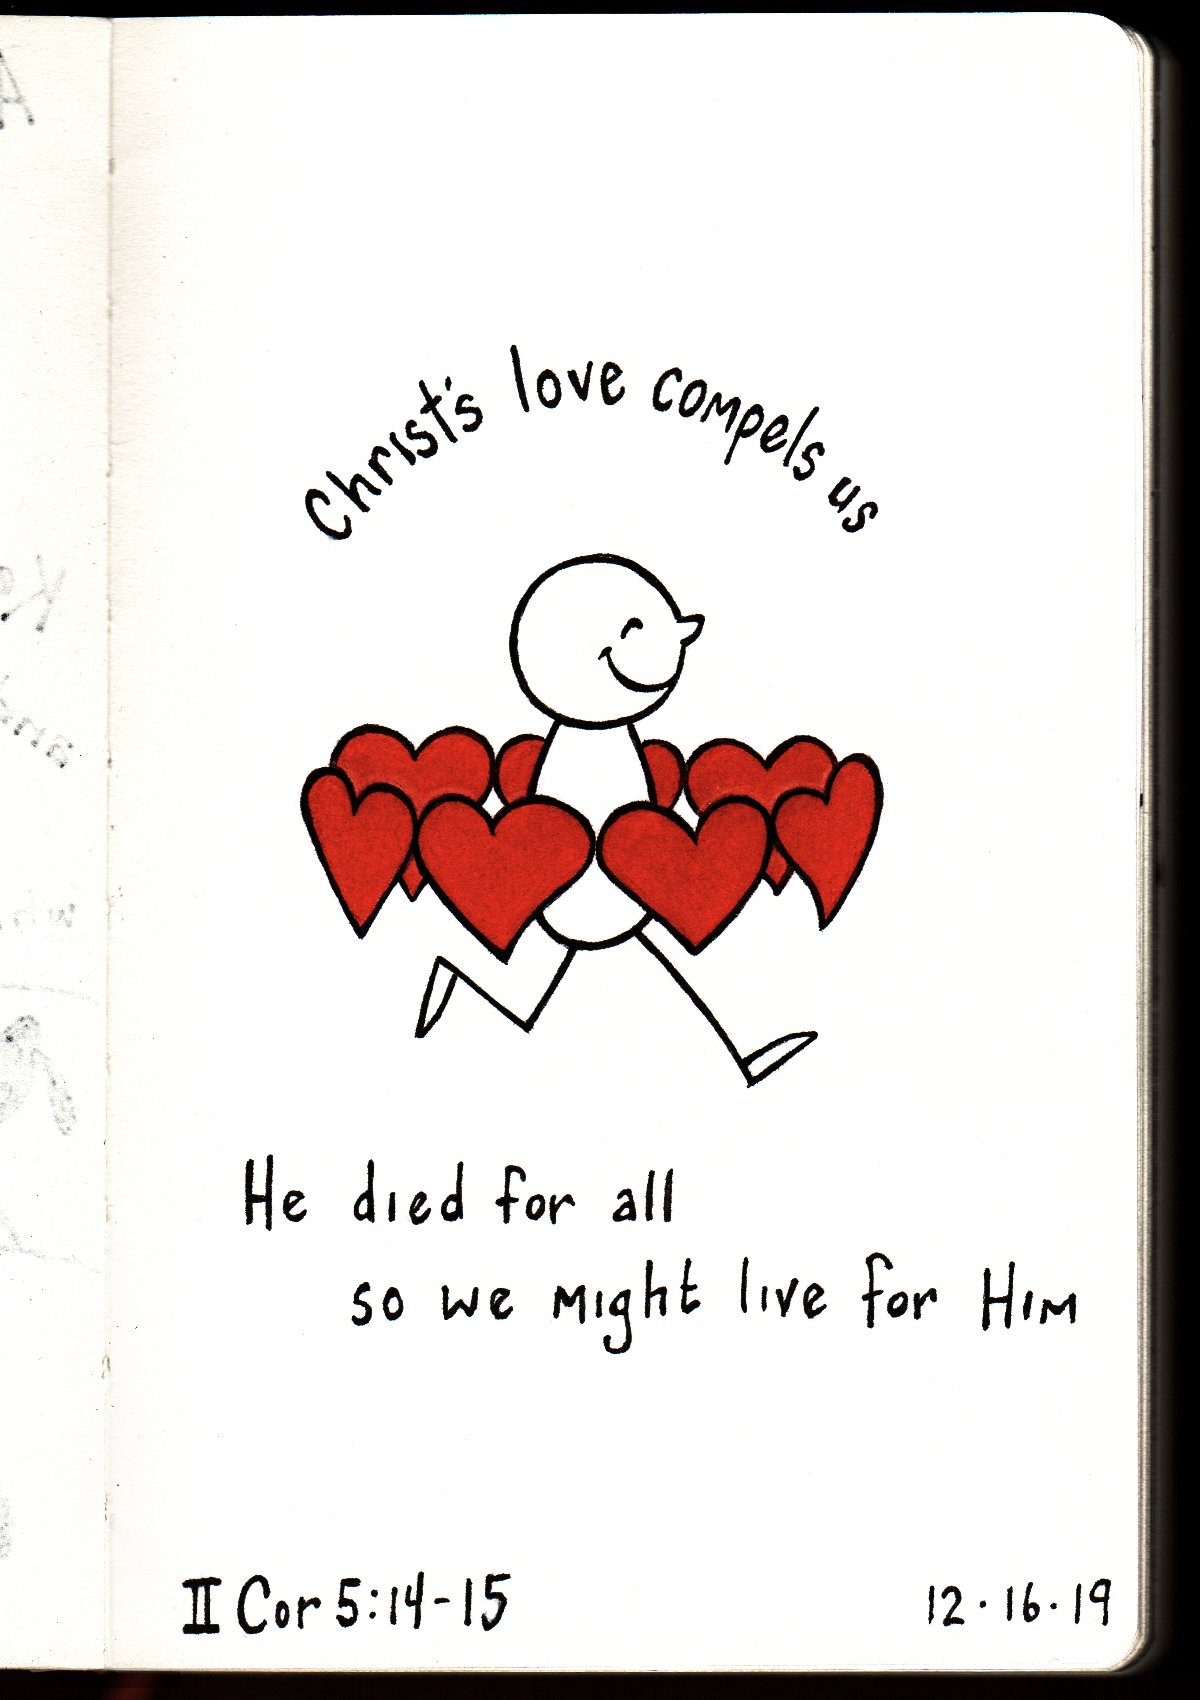 Christ's love compels us
He died for all
so we might live for Him
II Cor 5:14-15
12·16·19